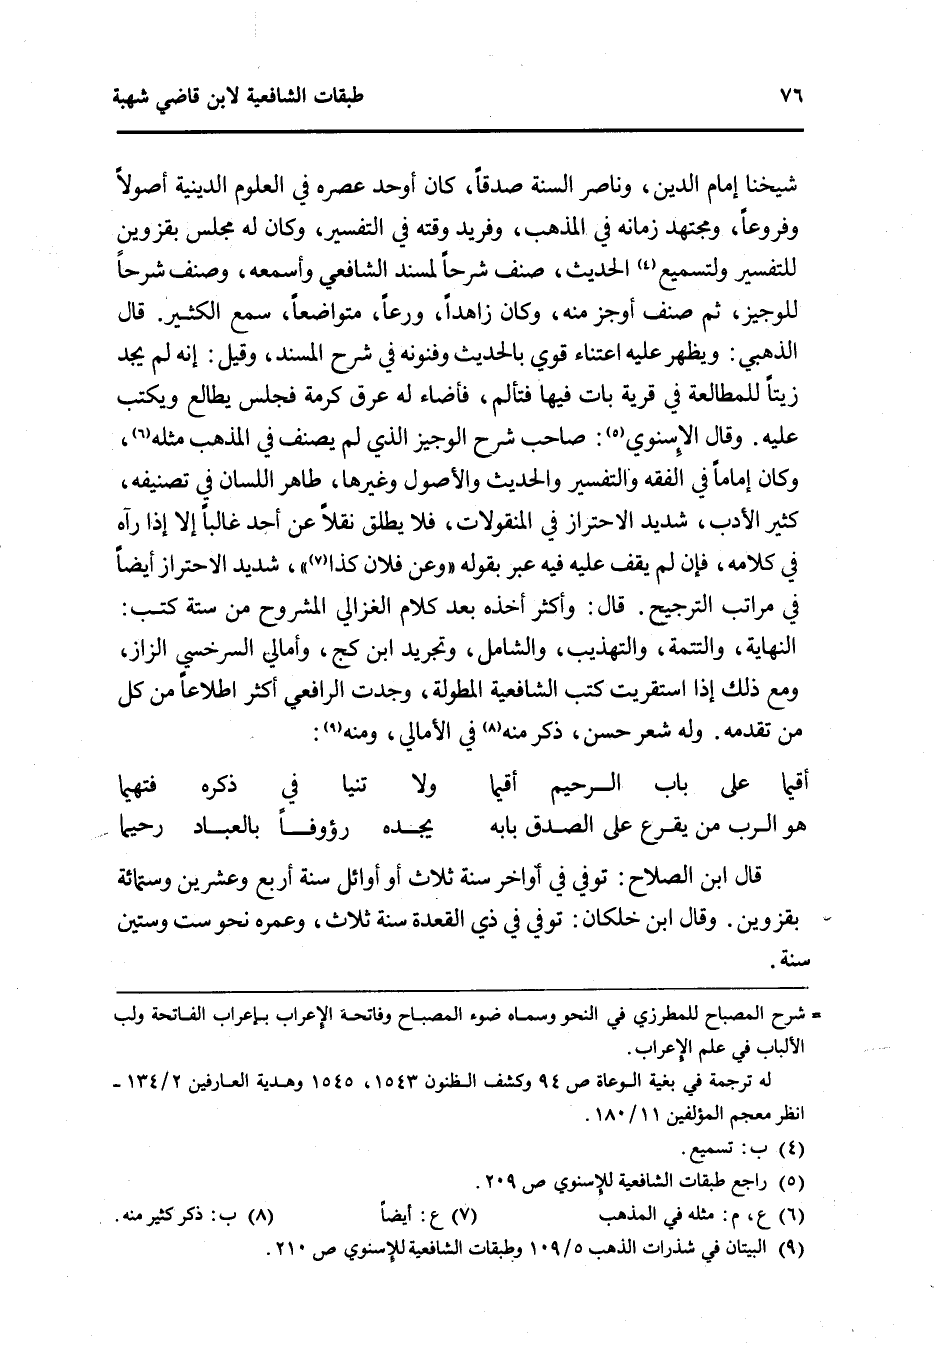 ٧٦ طبقات الشافعية لابن قاضي شهبة
شيخنا إمام الدين، وناصر السنة صدقاً، كان أوحد عصره في العلوم الدينية أصولاً
وفروعاً، ومجتهد زمانه في المذهب، وفريد وقته في التفسير، وكان له مجلس بقزوين
للتفسير ولتسميع(٤) الحديث، صنف شرحاً لمسند الشافعي وأسمعه، وصنف شرحاً
للوجيز، ثم صنف أوجز منه، وكان زاهداً، ورعاً، متواضعاً، سمع الكثير. قال
الذهبي: ويظهر عليه اعتناء قوي بالحديث وفنونه في شرح المسند، وقيل: إنه لم يجد
زيتاً للمطالعة في قرية بات فيها فتألم، فأضاء له عرق كرمة فجلس يطالع ويكتب
عليه. وقال الإسنوي(٥): صاحب شرح الوجيز الذي لم يصنف في المذهب مثله(٦)،
وكان إماماً في الفقه والتفسير والحديث والأصول وغيرها، طاهر اللسان في تصنيفه،
كثير الأدب، شديد الاحتراز في المنقولات، فلا يطلق نقلاً عن أحد غالباً إلا إذا رآه
في كلامه، فإن لم يقف عليه فيه عبر بقوله «وعن فلان كذا(٧)»، شديد الاحتراز أيضاً
في مراتب الترجيح. قال: وأكثر أخذه بعد كلام الغزالي المشروح من ستة كتب:
النهاية، والتتمة، والتهذيب، والشامل، وتجريد ابن كج، وأمالي السرخسي الزاز،
ومع ذلك إذا استقريت كتب الشافعية المطولة، وجدت الرافعي أكثر اطلاعاً من كل
من تقدمه. وله شعر حسن، ذكر منه(٨) في الأمالي، ومنه(٩):
أقيما على باب الرحيم أقيما ولا تنيا في ذكره فتهيما
هو الرب من يقرع على الصدق بابه يجده رؤوفاً بالعباد رحيما
قال ابن الصلاح: توفي في أواخر سنة ثلاث أو أوائل سنة أربع وعشرين وستمائة
بقزوين. وقال ابن خلكان: توفي في ذي القعدة سنة ثلاث، وعمره نحو ست وستين
سنة.
= شرح المصباح للمطرزي في النحو وسماه ضوء المصباح وفاتحة الإعراب بإعراب الفاتحة ولب
الألباب في علم الإعراب.
له ترجمة في بغية الوعاة ص ٩٤ وكشف الظنون ١٥٤٣، ١٥٤٥ وهدية العارفين ١٣٤/٢ -
انظر معجم المؤلفين ١٨٠/١١.
(٤) ب: تسميع.
(٥) راجع طبقات الشافعية للإسنوي ص ٢٠٩.
(٦) ع، م: مثله في المذهب (٧) ع: أيضاً (٨) ب: ذكر كثير منه.
(٩) البيتان في شذرات الذهب ١٠٩/٥ وطبقات الشافعية للإسنوي ص ٢١٠.